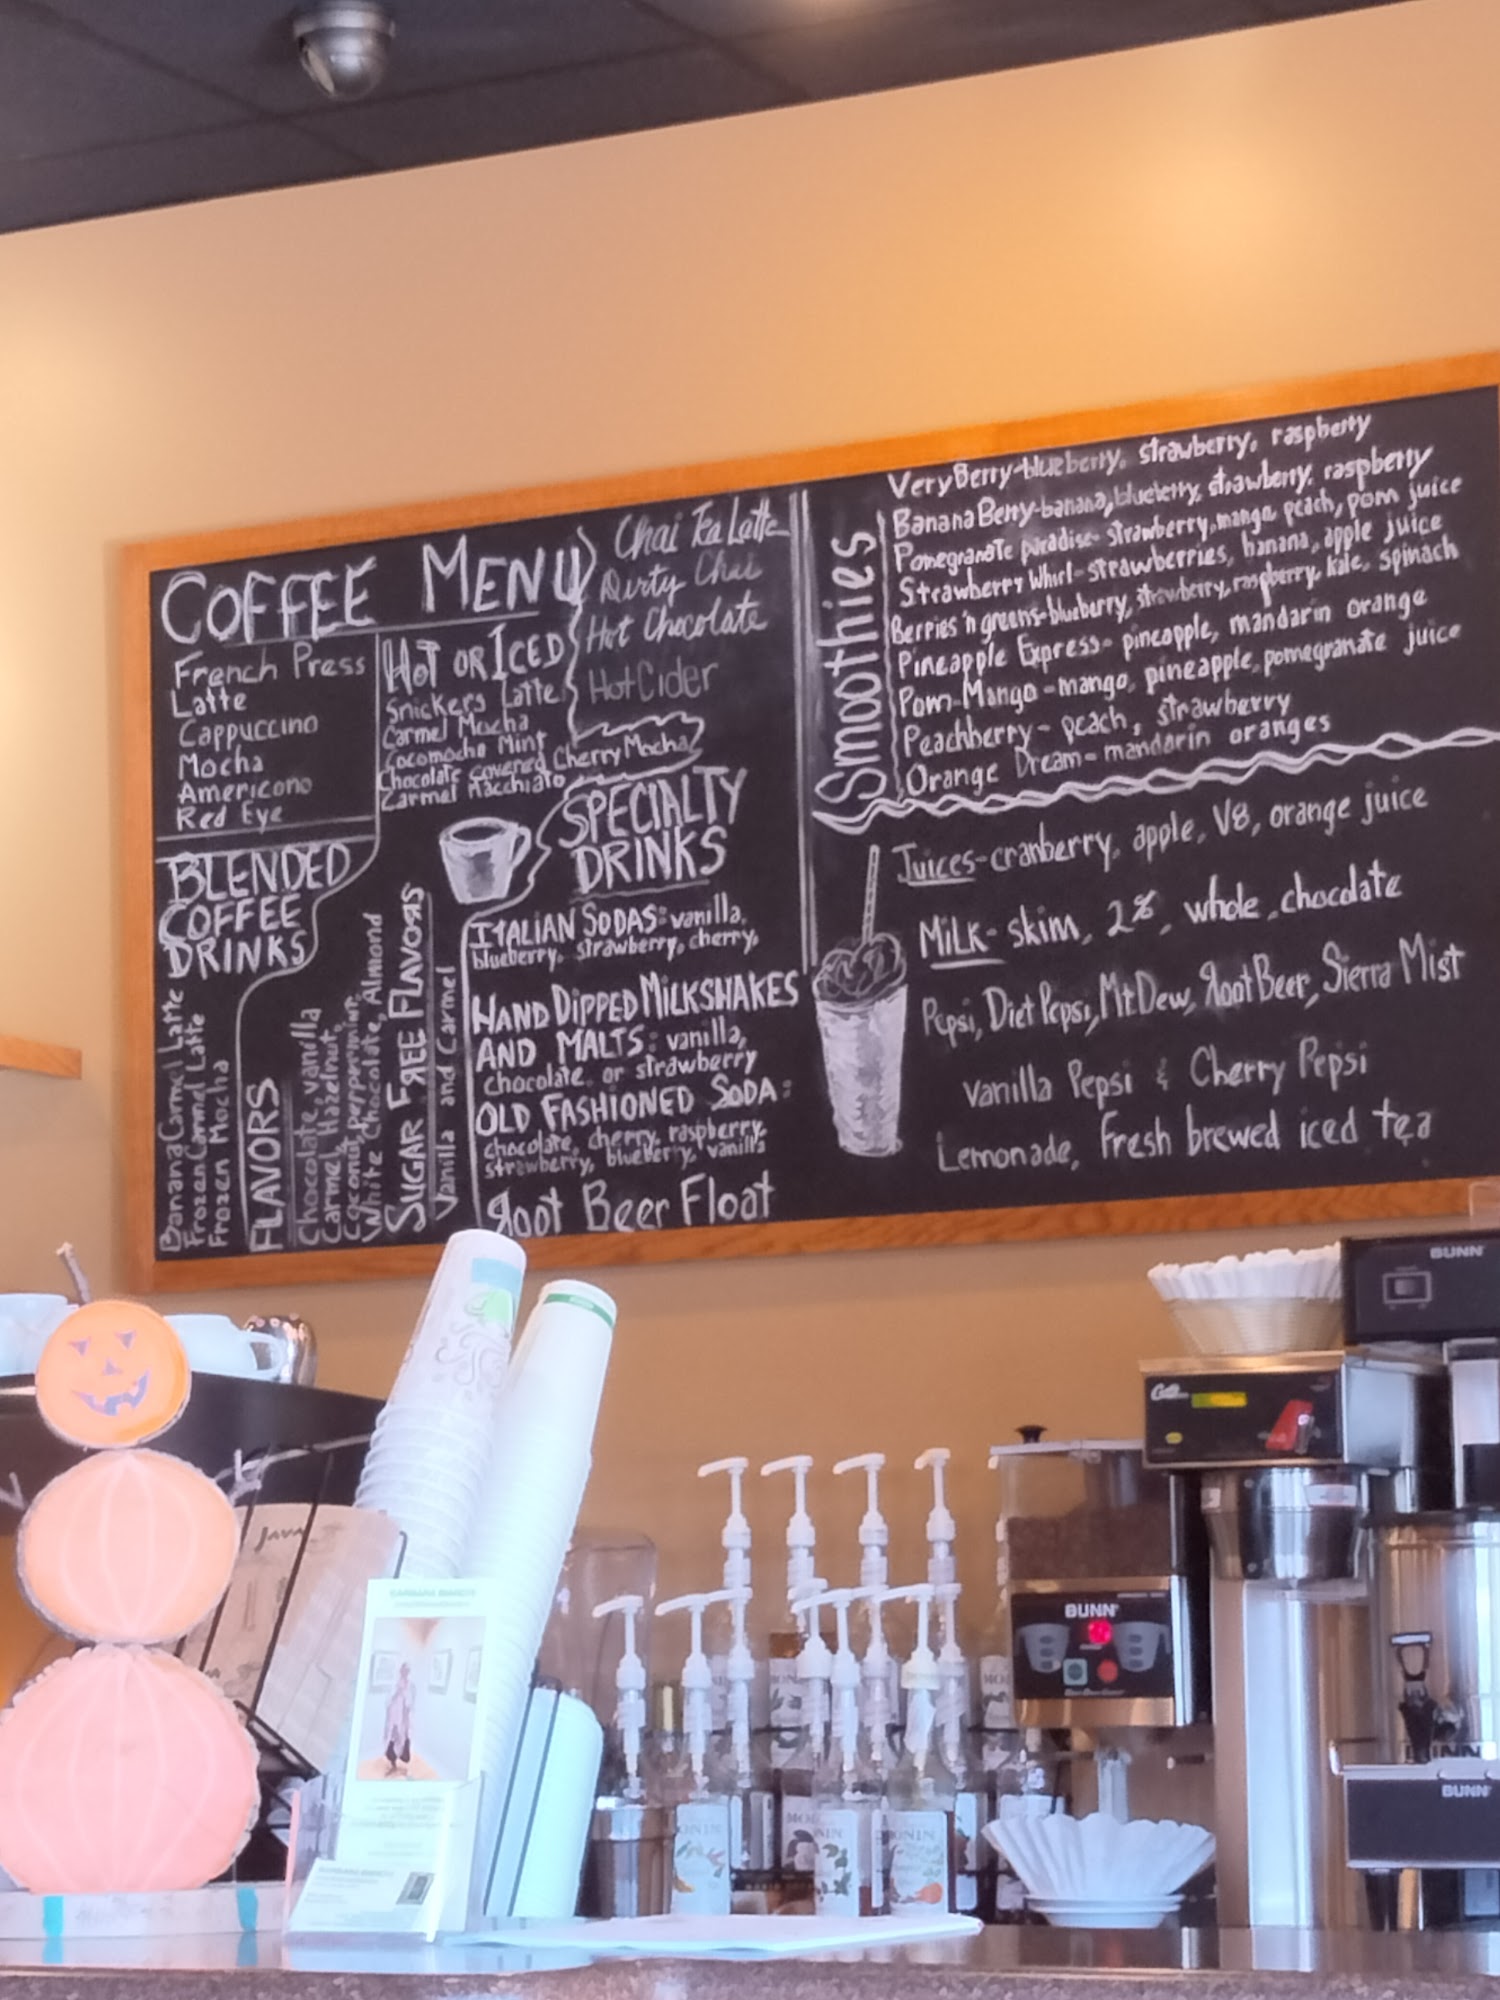 COFFEE MENU
French Press
Latte
Cappuccino
Mocha
Americano
Red Eye
HOT OR ICED
Snickers Latte
Carmel Mocha
Cocomocha Mint
Chocolate covered Cherry Mocha
Carmel Macchiato
Chai Tea Latte
Dirty Chai
Hot Chocolate
Hot Cider
BLENDED
COFFEE
DRINKS
Banana Carmel Latte
Frozen Carmel Latte
Frozen Mocha
FLAVORS
Chocolate, vanilla
Carmel, Hazelnut,
Coconut, peppermint,
White Chocolate, Almond
SUGAR FREE FLAVORS
Vanilla and Carmel
SPECIALTY
DRINKS
ITALIAN SODAS: vanilla,
blueberry, strawberry, cherry,
HAND DIPPED MILKSHAKES
AND MALTS: vanilla,
chocolate, or strawberry
OLD FASHIONED SODA:
chocolate, cherry, raspberry,
strawberry, blueberry, vanilla
Root Beer Float
Smoothies
Very Berry-blueberry, strawberry, raspberry
Banana Berry-banana, blueberry, strawberry, raspberry
Pomegranate paradise- strawberry, mango, peach, pom juice
Strawberry Whirl-strawberries, banana, apple juice
Berries 'n greens-blueberry, strawberry, raspberry, kale, spinach
Pineapple Express- pineapple, mandarin orange
Pom-Mango-mango, pineapple, pomegranate juice
Peachberry- peach, strawberry
Orange Dream- mandarin oranges
Juices-cranberry, apple, V8, orange juice
Milk- skim, 2%, whole, chocolate
Pepsi, Diet Pepsi, Mt Dew, Root Beer, Sierra Mist
vanilla Pepsi & Cherry Pepsi
Lemonade, Fresh brewed iced tea
BUNN
JAVA
BUNN
MONIN
BUNN
BUNN